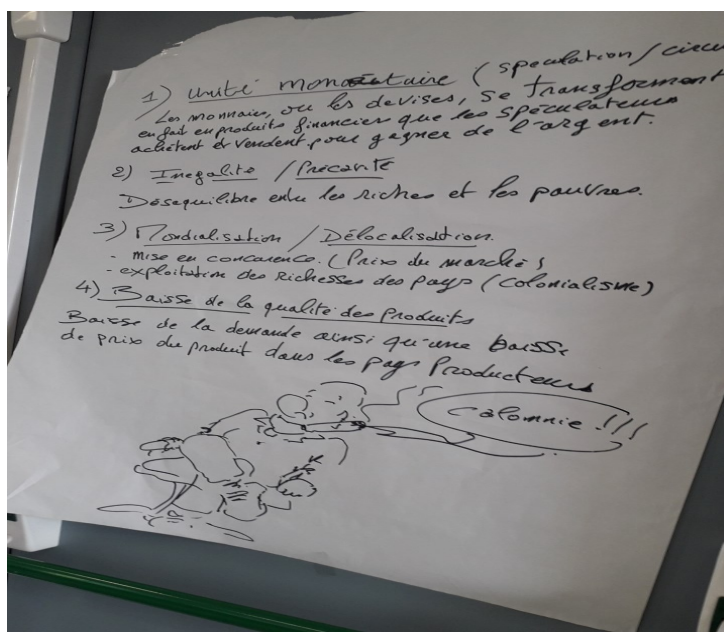 1) Unité monétaire (speculation/circu
Les monnaies, ou les devises, se transforment
en fait en produits financiers que les spéculateurs
achètent et vendent pour gagner de l'argent.
2) Inegalité / Précarité
Désequilibre entre les riches et les pauvres.
3) Mondialisation / Délocalisation.
- mise en concurence. (Prix du marché)
- exploitation des Richesses des pays (colonialisme)
4) Baisse de la qualité des Produits
Baisse de la demande ainsi qu'une baisse
de prix du produit dans les pays Producteurs
Calomnie !!!